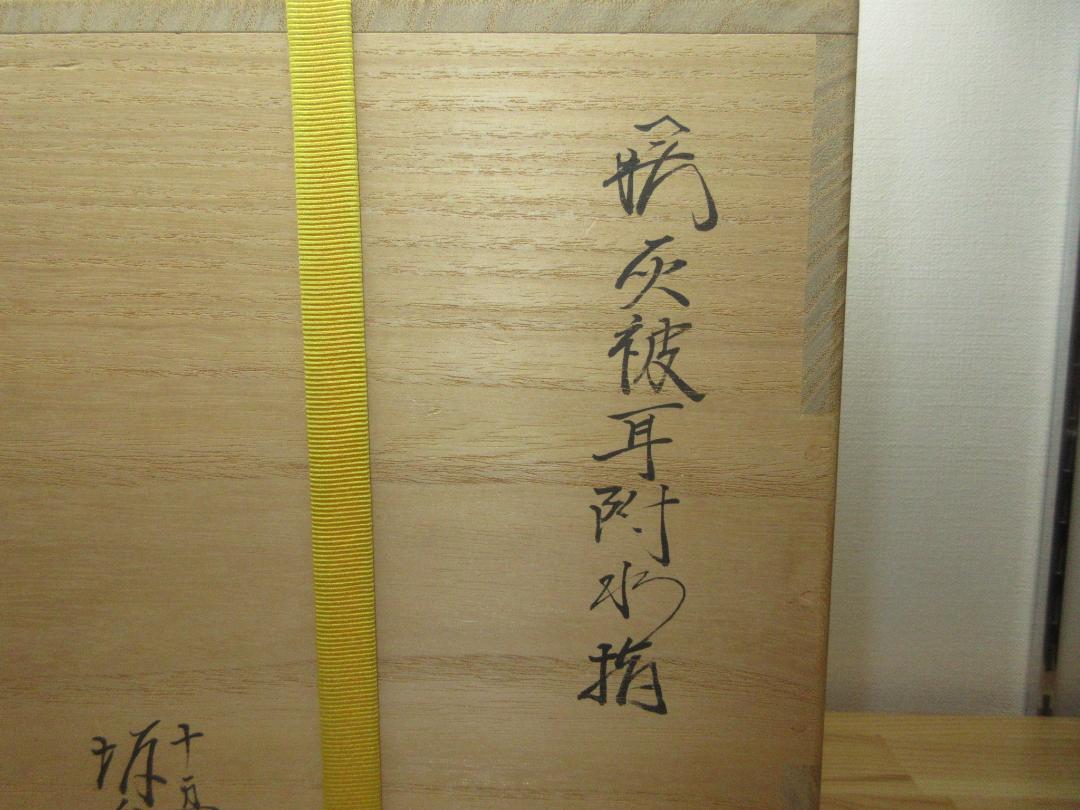 萩灰被耳附水指
十五
坂